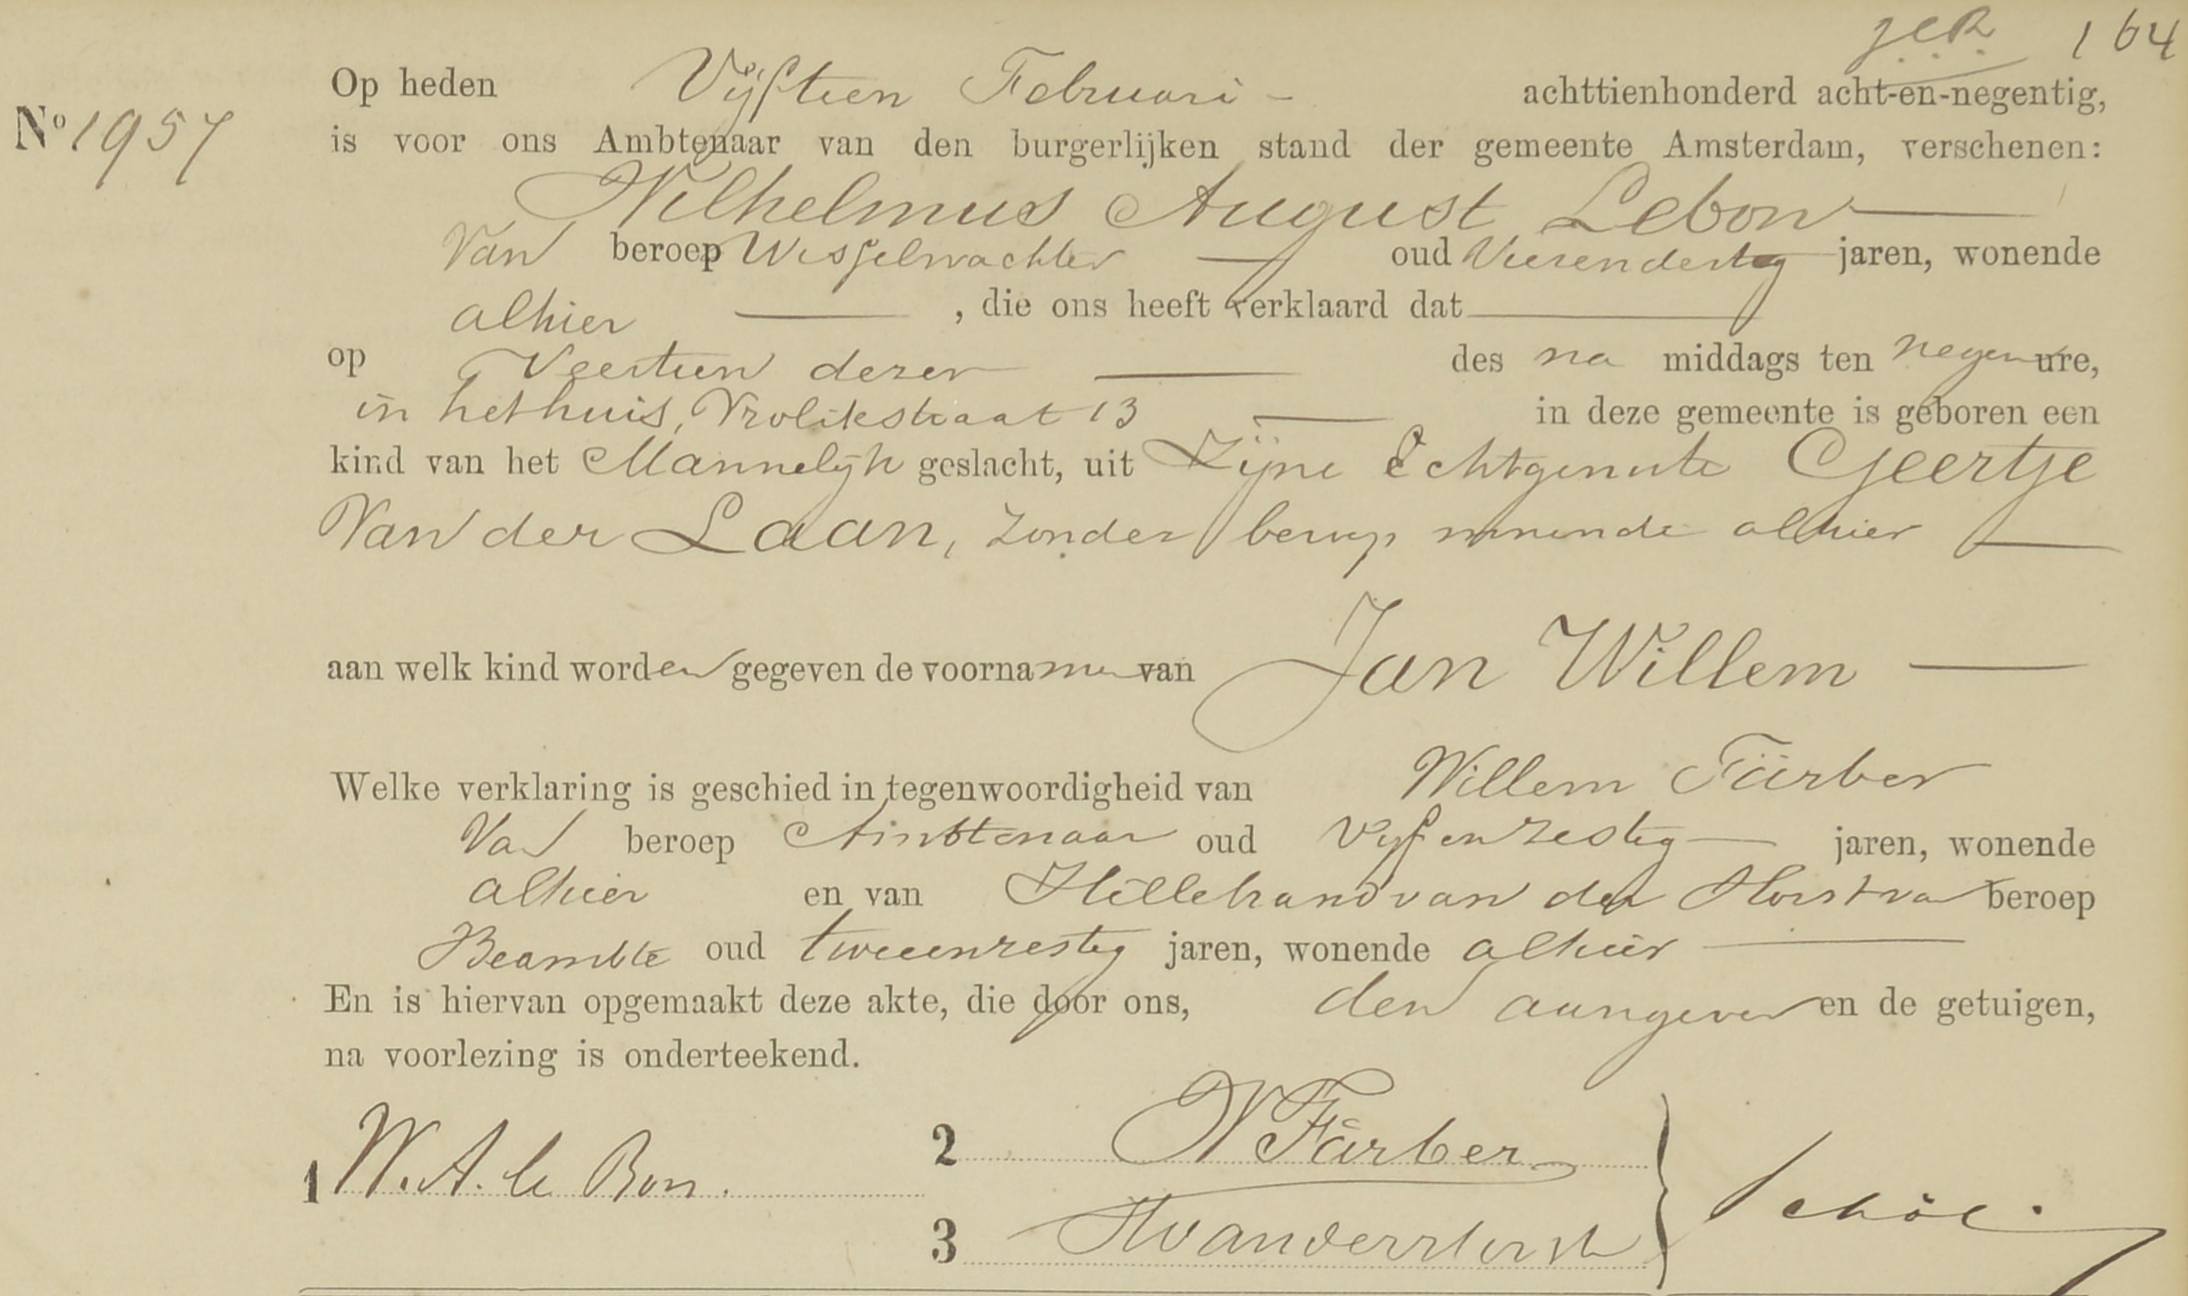 164
Op heden Vijftien Februari - achttienhonderd acht-en-negentig,
No 1957
is voor ons Ambtenaar van den burgerlijken stand der gemeente Amsterdam, verschenen:
Wilhelmus August Lebon
van beroep Wisselwachter oud Vierendertig jaren, wonende
alhier , die ons heeft verklaard dat
op Veertien dezer des na middags ten negen ure,
in het huis, Vrolikstraat 13 in deze gemeente is geboren een
kind van het Mannelijk geslacht, uit Zijne Echtgenoote Geertje
Van der Laan, zonder beroep wonende alhier
aan welk kind worden gegeven de voornamen van Jan Willem
Welke verklaring is geschied in tegenwoordigheid van Willem Färber
Van beroep Ambtenaar oud Vijfenzestig jaren, wonende
alhier en van Hillebrand van der Horst van beroep
Beambte oud tweeenzestig jaren, wonende alhier
En is hiervan opgemaakt deze akte, die door ons, den aangever en de getuigen,
na voorlezing is onderteekend.
1 W. A. le Bon.
2 W Färber
3 HvanderHorst